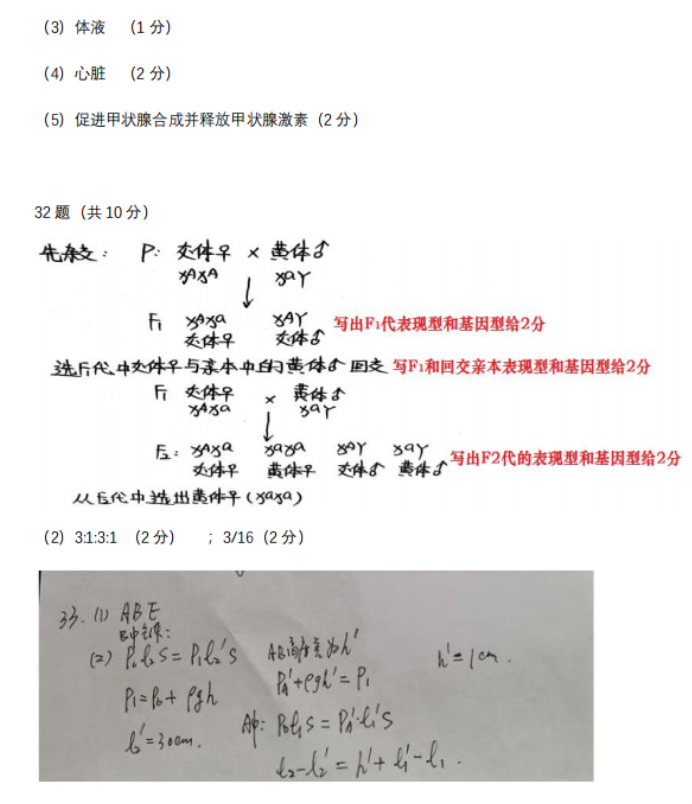 (3) 体液 (1 分)
(4) 心脏 (2 分)
(5) 促进甲状腺合成并释放甲状腺激素 (2 分)
32 题 (共 10 分)
先杂交: P: 灰体♀ × 黄体♂
XAXA XaY
F1 XAXa XAY 写出F1代表现型和基因型给2分
灰体♀ 灰体♂
选F1代中灰体♀与亲本中的黄体♂回交 写F1和回交亲本表现型和基因型给2分
F1 灰体♀ × 黄体♂
XAXa XaY
F2: XAXa XaXa XAY XaY 写出F2代的表现型和基因型给2分
灰体♀ 黄体♀ 灰体♂ 黄体♂
从F2代中选出黄体♀(XaXa)
(2) 3:1:3:1 (2 分) ; 3/16 (2 分)
33. (1) ABE
B中气体:
(2) P0l2S = P1l2'S AB高度差为h' h'=1cm.
P1=P0+ρgh PA'+ρgh'=P1
l2'=30cm. A中: P0l1S = PA'l1'S
l2-l2'=h'+l1'-l1.